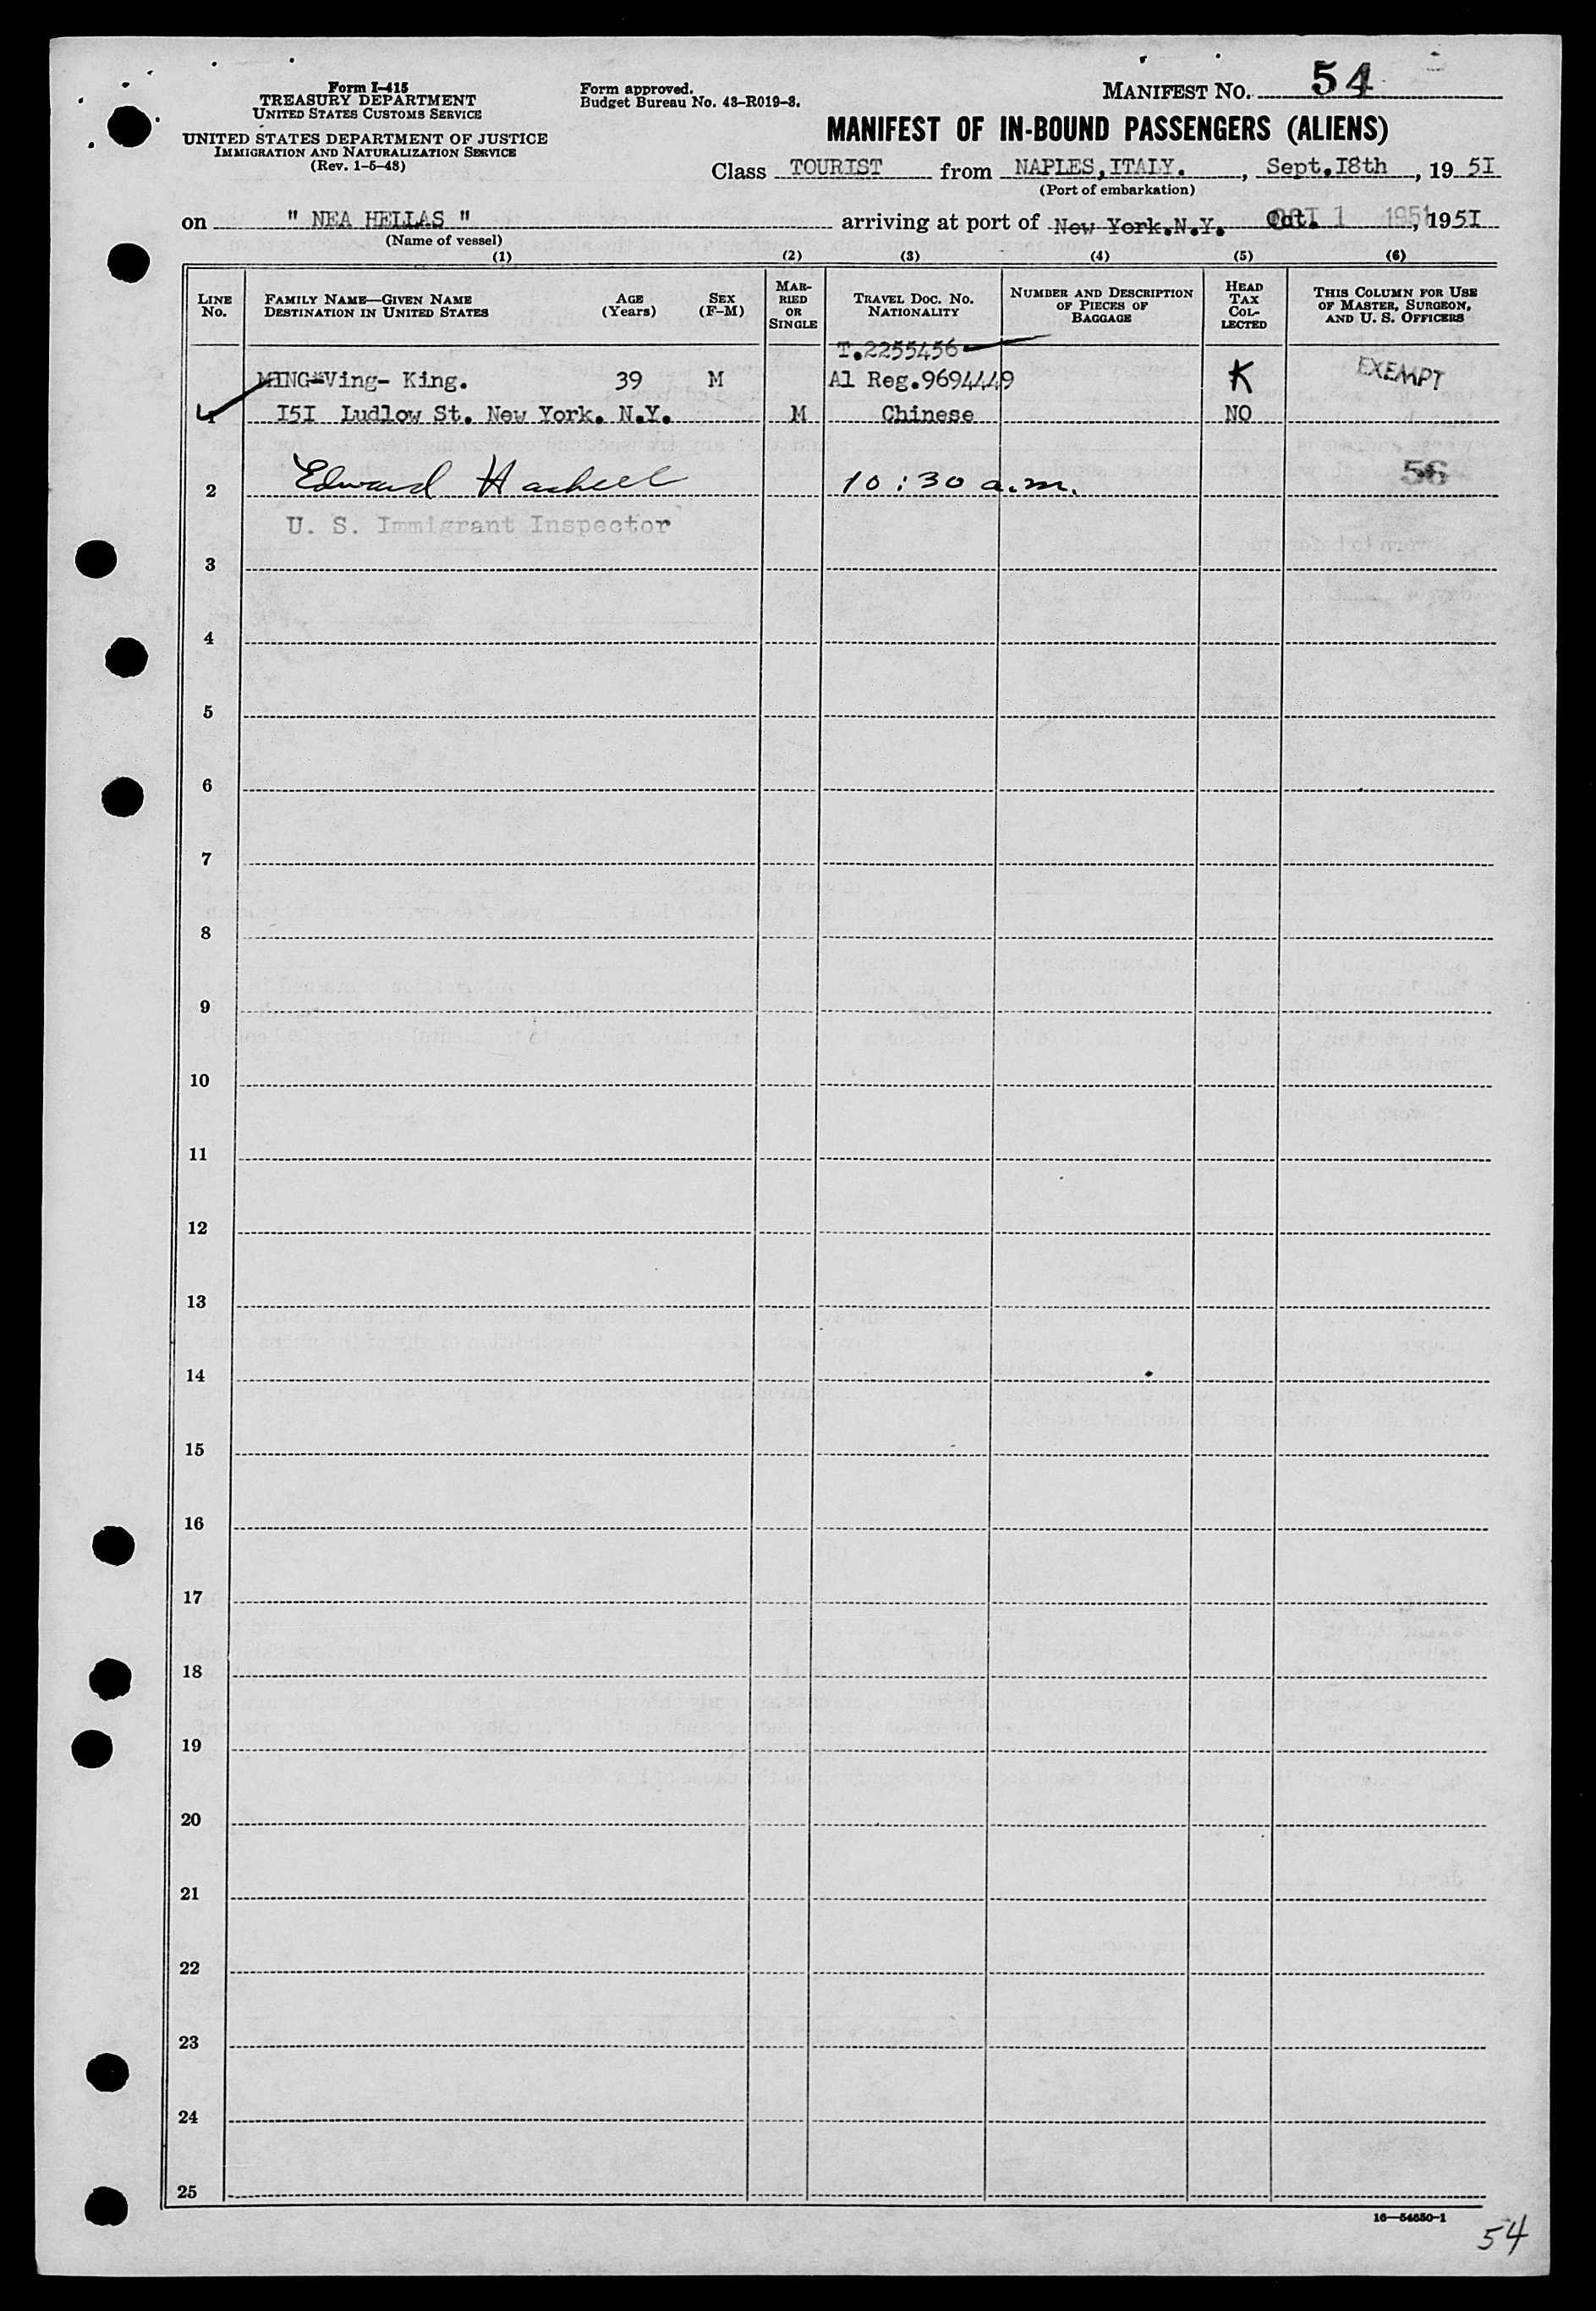 Form I-415
TREASURY DEPARTMENT
UNITED STATES CUSTOMS SERVICE
UNITED STATES DEPARTMENT OF JUSTICE
IMMIGRATION AND NATURALIZATION SERVICE
(Rev. 1-5-48)
Form approved.
Budget Bureau No. 43-R019-3.
MANIFEST NO. 54
MANIFEST OF IN-BOUND PASSENGERS (ALIENS)
Class TOURIST from NAPLES,ITALY. , Sept.I8th , 19 5I
(Port of embarkation)
on " NEA HELLAS " arriving at port of New York.N.Y. Oct. 1 1951 , 195I
(Name of vessel)
(1) (2) (3) (4) (5) (6)
LINE No.
FAMILY NAME—GIVEN NAME
DESTINATION IN UNITED STATES
AGE (Years)
SEX (F-M)
MARRIED OR SINGLE
TRAVEL DOC. NO. NATIONALITY
NUMBER AND DESCRIPTION OF PIECES OF BAGGAGE
HEAD TAX COLLECTED
THIS COLUMN FOR USE OF MASTER, SURGEON, AND U. S. OFFICERS
T.2255456
MING-Ving- King. 39 M Al Reg.9694449 K EXEMPT
1 I5I Ludlow St. New York. N.Y. M Chinese NO
2 Edward 10:30 a.m. 56
U. S. Immigrant Inspector
3
4
5
6
7
8
9
10
11
12
13
14
15
16
17
18
19
20
21
22
23
24
25
16—54650-1
54